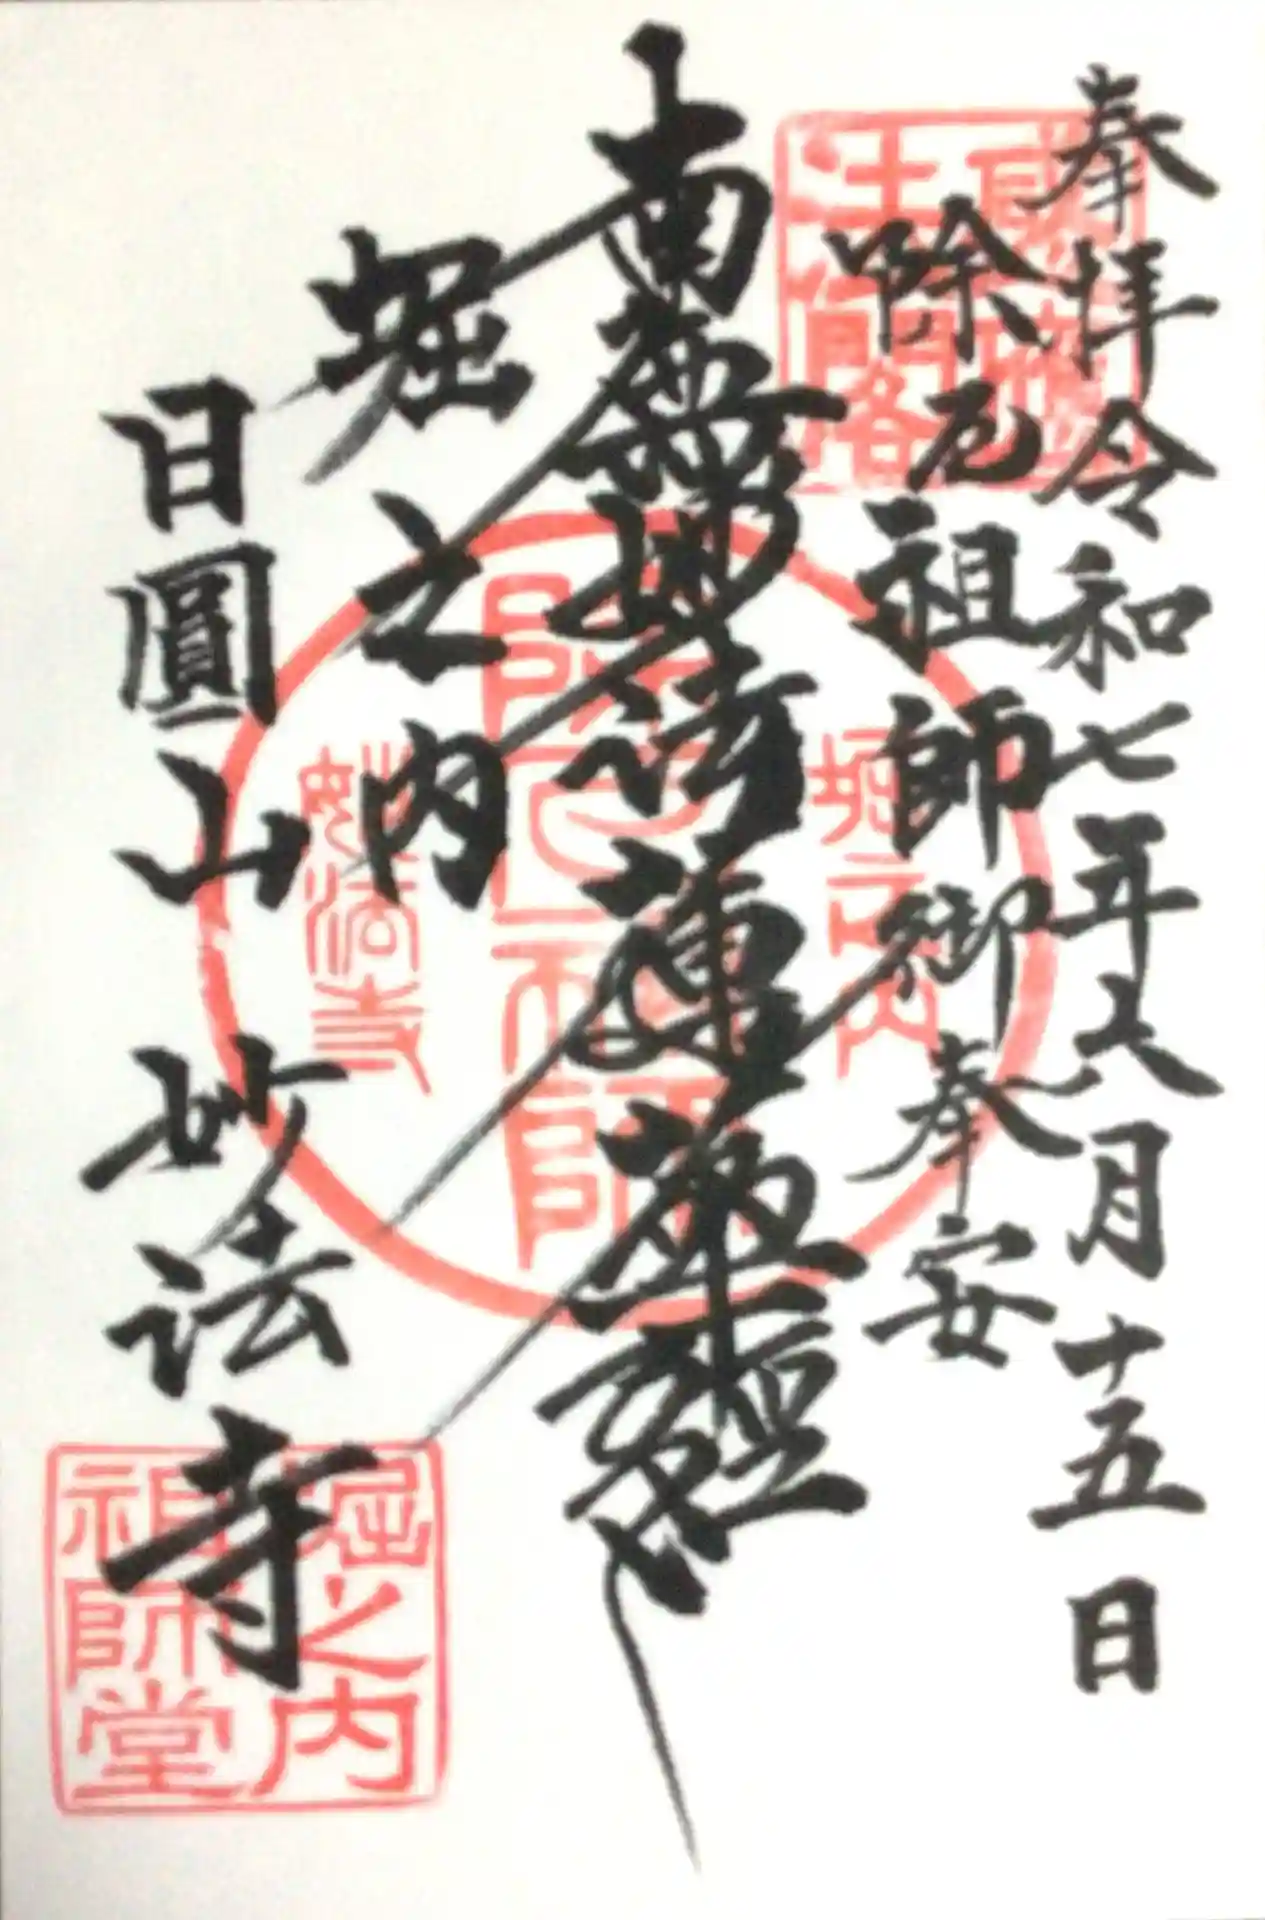 奉拝 令和七年六月十五日
除厄祖師御奉安
南無妙法蓮華経
堀之内
日圓山 妙法寺
堀之内
除厄祖師
妙法寺
堀之内
祖師堂